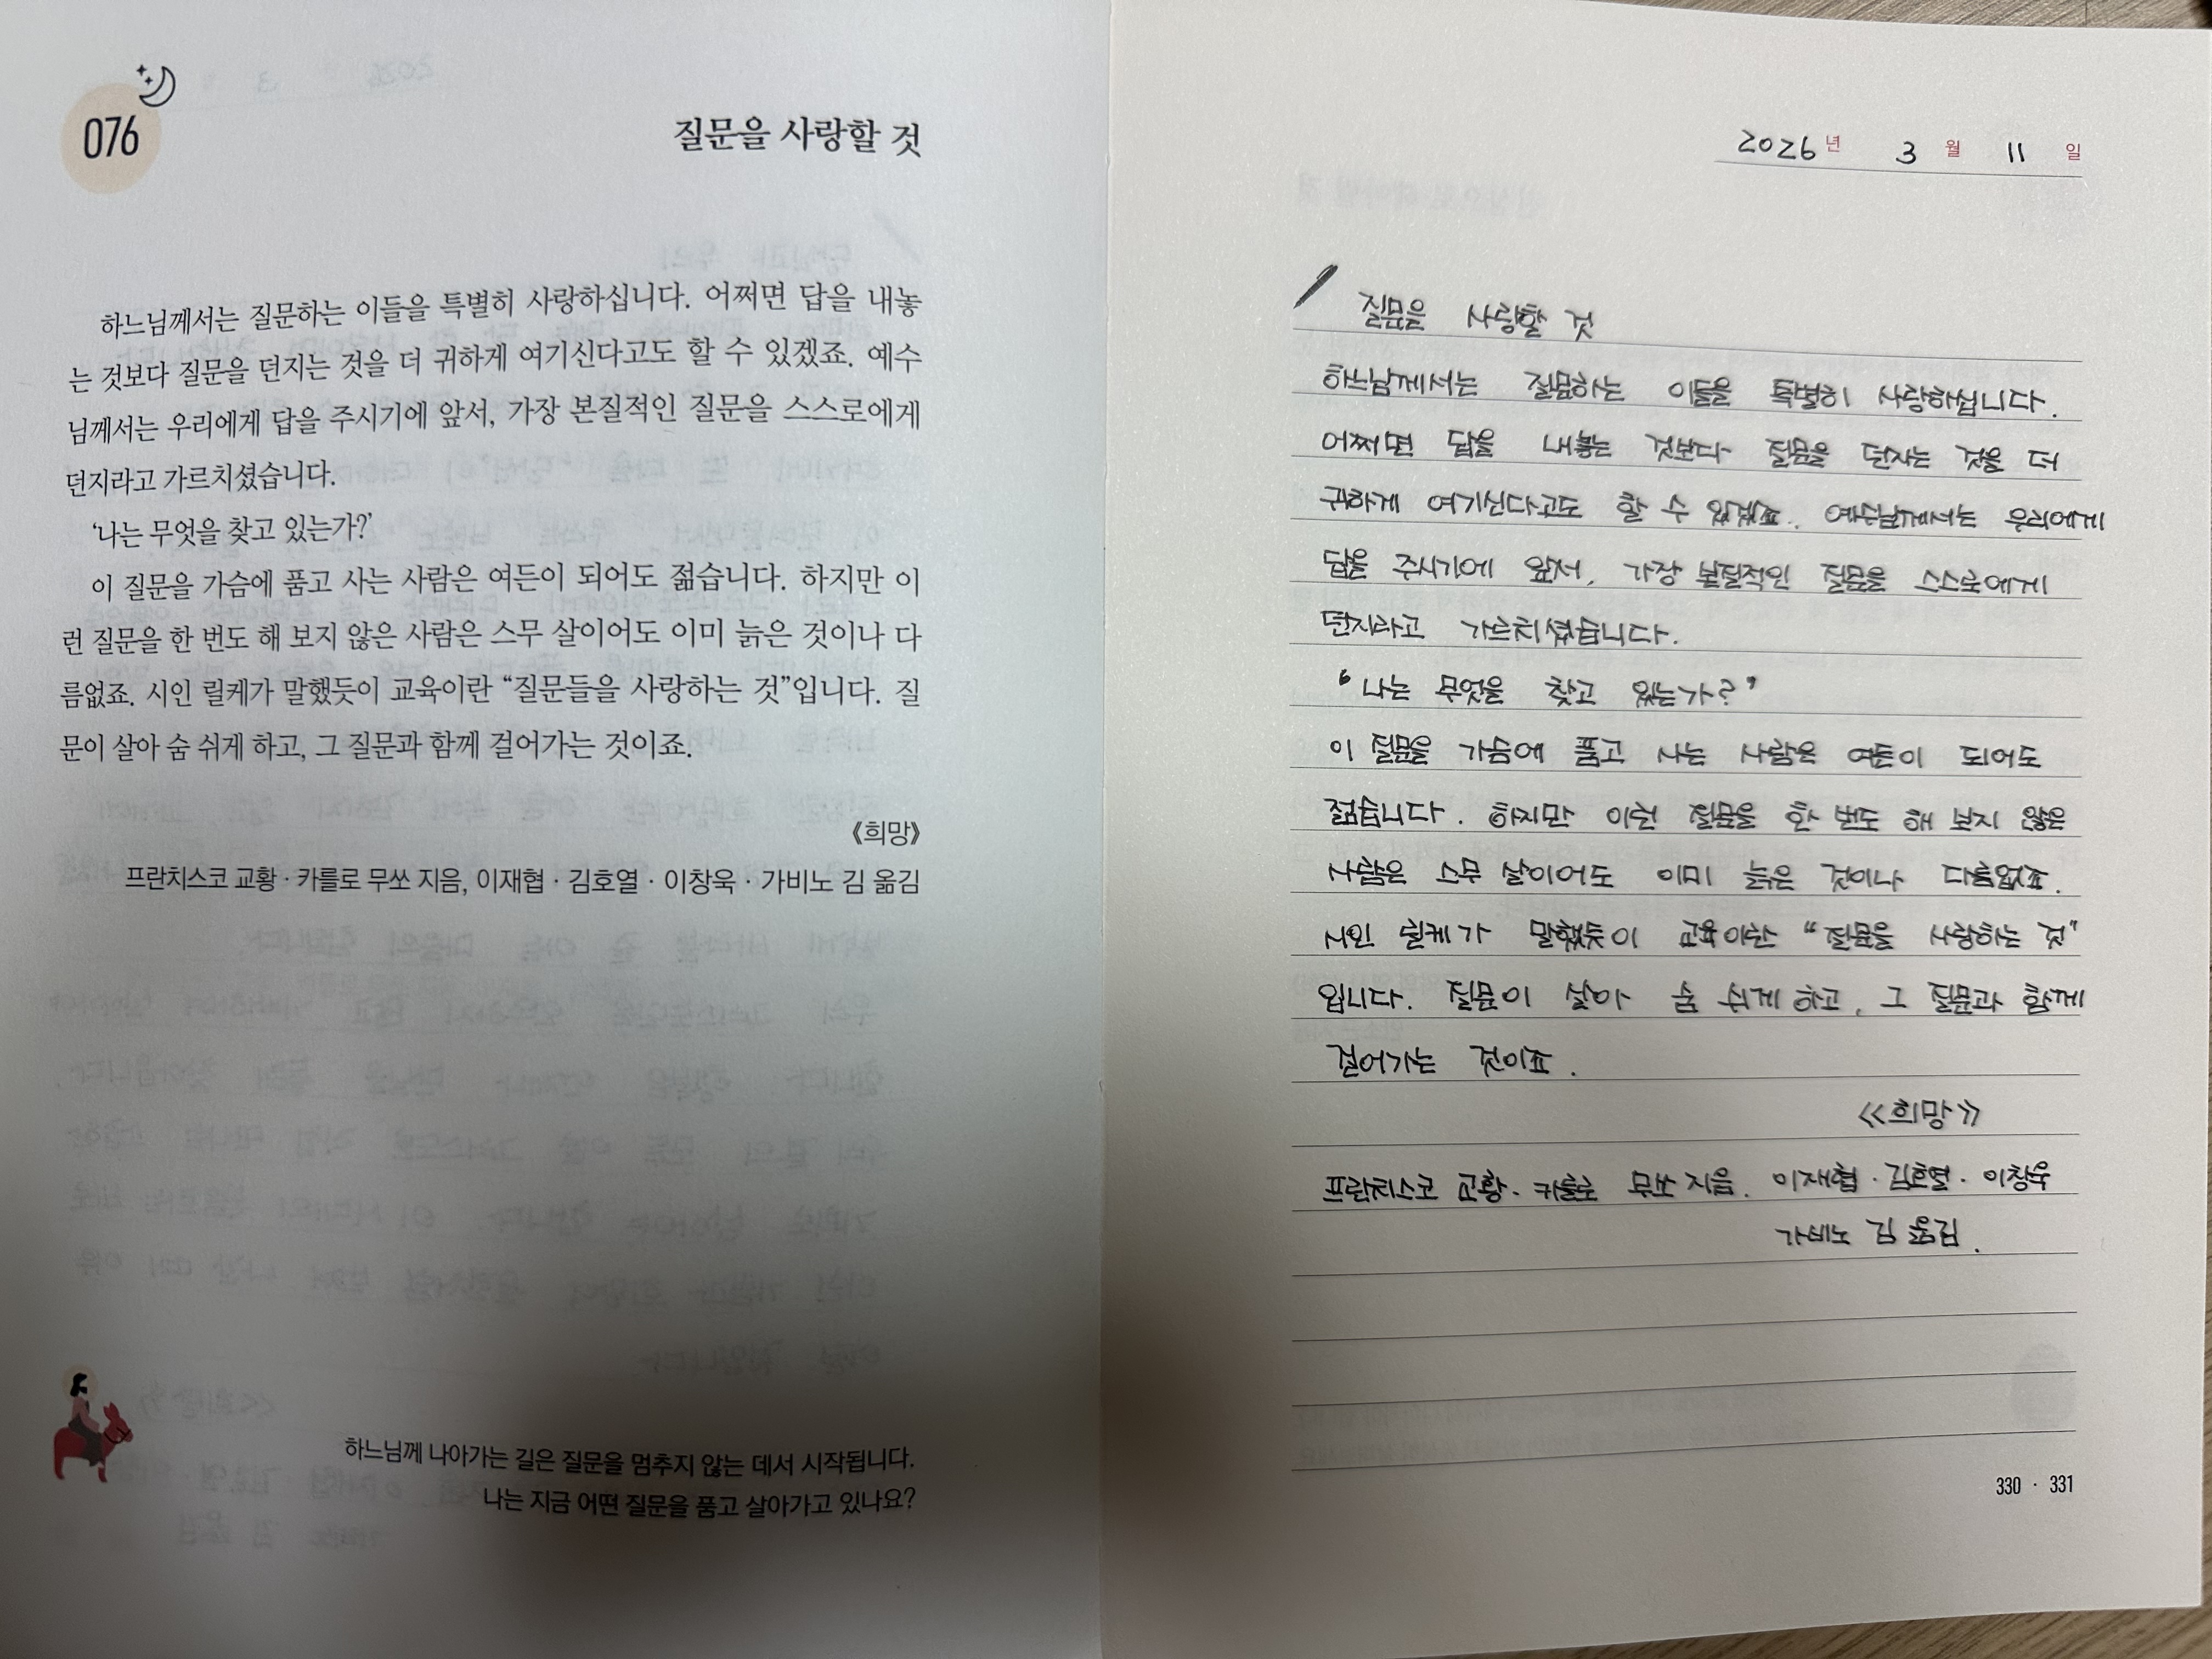 076
질문을 사랑할 것
하느님께서는 질문하는 이들을 특별히 사랑하십니다. 어쩌면 답을 내놓
는 것보다 질문을 던지는 것을 더 귀하게 여기신다고도 할 수 있겠죠. 예수
님께서는 우리에게 답을 주시기에 앞서, 가장 본질적인 질문을 스스로에게
던지라고 가르치셨습니다.
‘나는 무엇을 찾고 있는가?’
이 질문을 가슴에 품고 사는 사람은 여든이 되어도 젊습니다. 하지만 이
런 질문을 한 번도 해 보지 않은 사람은 스무 살이어도 이미 늙은 것이나 다
름없죠. 시인 릴케가 말했듯이 교육이란 “질문들을 사랑하는 것”입니다. 질
문이 살아 숨 쉬게 하고, 그 질문과 함께 걸어가는 것이죠.
《희망》
프란치스코 교황 · 카를로 무쏘 지음, 이재협 · 김호열 · 이창욱 · 가비노 김 옮김
하느님께 나아가는 길은 질문을 멈추지 않는 데서 시작됩니다.
나는 지금 어떤 질문을 품고 살아가고 있나요?
2026년 3월 11일
질문을 사랑할 것
하느님께서는 질문하는 이들을 특별히 사랑하십니다.
어쩌면 답을 내놓는 것보다 질문을 던지는 것을 더
귀하게 여기신다고도 할 수 있겠죠. 예수님께서는 우리에게
답을 주시기에 앞서, 가장 본질적인 질문을 스스로에게
던지라고 가르치셨습니다.
‘나는 무엇을 찾고 있는가?’
이 질문을 가슴에 품고 사는 사람은 여든이 되어도
젊습니다. 하지만 이런 질문을 한 번도 해 보지 않은
사람은 스무 살이어도 이미 늙은 것이나 다름없죠.
시인 릴케가 말했듯이 교육이란 “질문을 사랑하는 것”
입니다. 질문이 살아 숨 쉬게 하고, 그 질문과 함께
걸어가는 것이죠.
《희망》
프란치스코 교황 · 카를로 무쏘 지음. 이재협 · 김호열 · 이창욱
가비노 김 옮김.
330 · 331